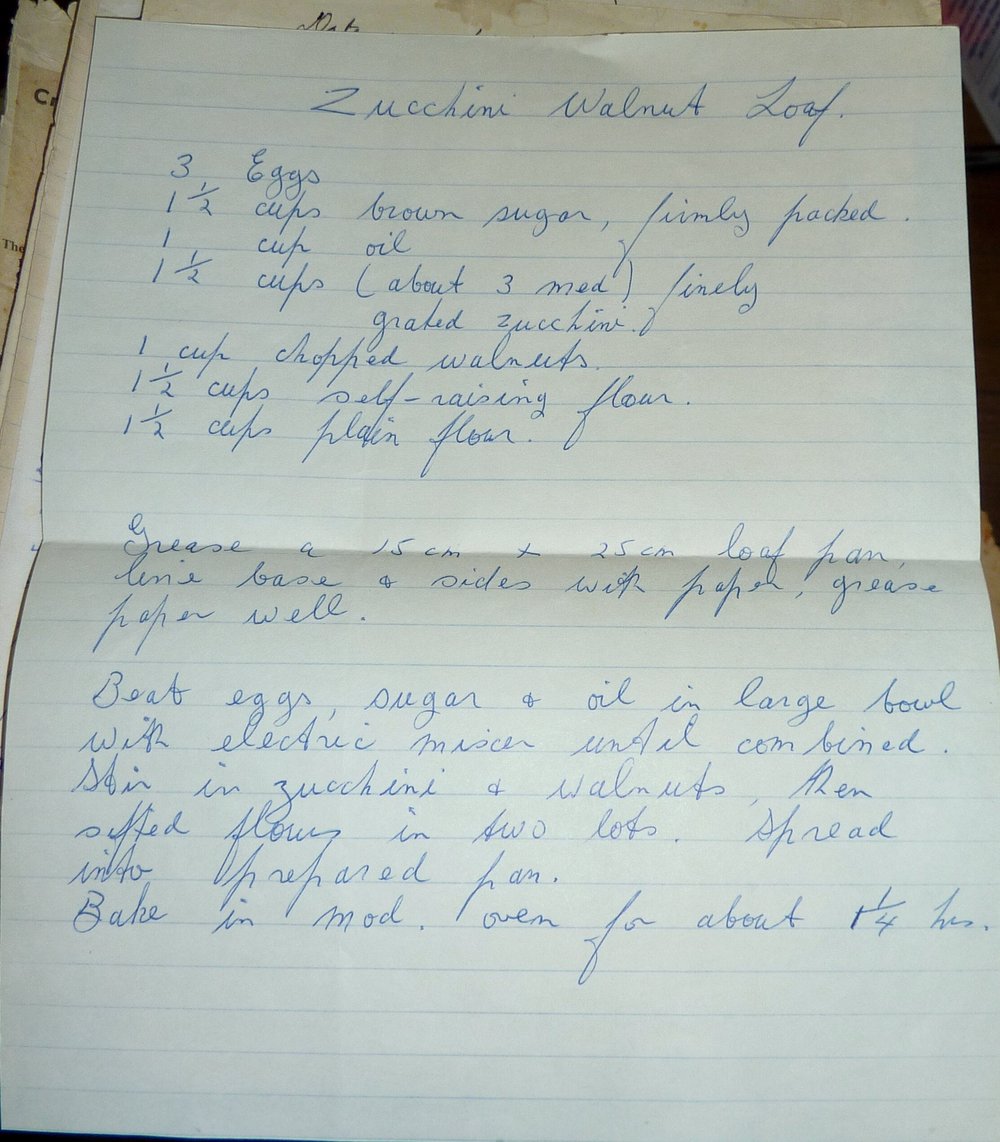 Zucchini Walnut Loaf.
3 Eggs
1 1/2 cups brown sugar, firmly packed.
1 cup oil
1 1/2 cups (about 3 med) finely
grated zucchini.
1 cup chopped walnuts.
1 1/2 cups self-raising flour.
1 1/2 cups plain flour.
Grease a 15cm x 25cm loaf pan,
line base & sides with paper, grease
paper well.
Beat eggs, sugar & oil in large bowl
with electric mixer until combined.
Stir in zucchini & walnuts, then
sifted flours in two lots. Spread
into prepared pan.
Bake in mod. oven for about 1 1/4 hrs.
The